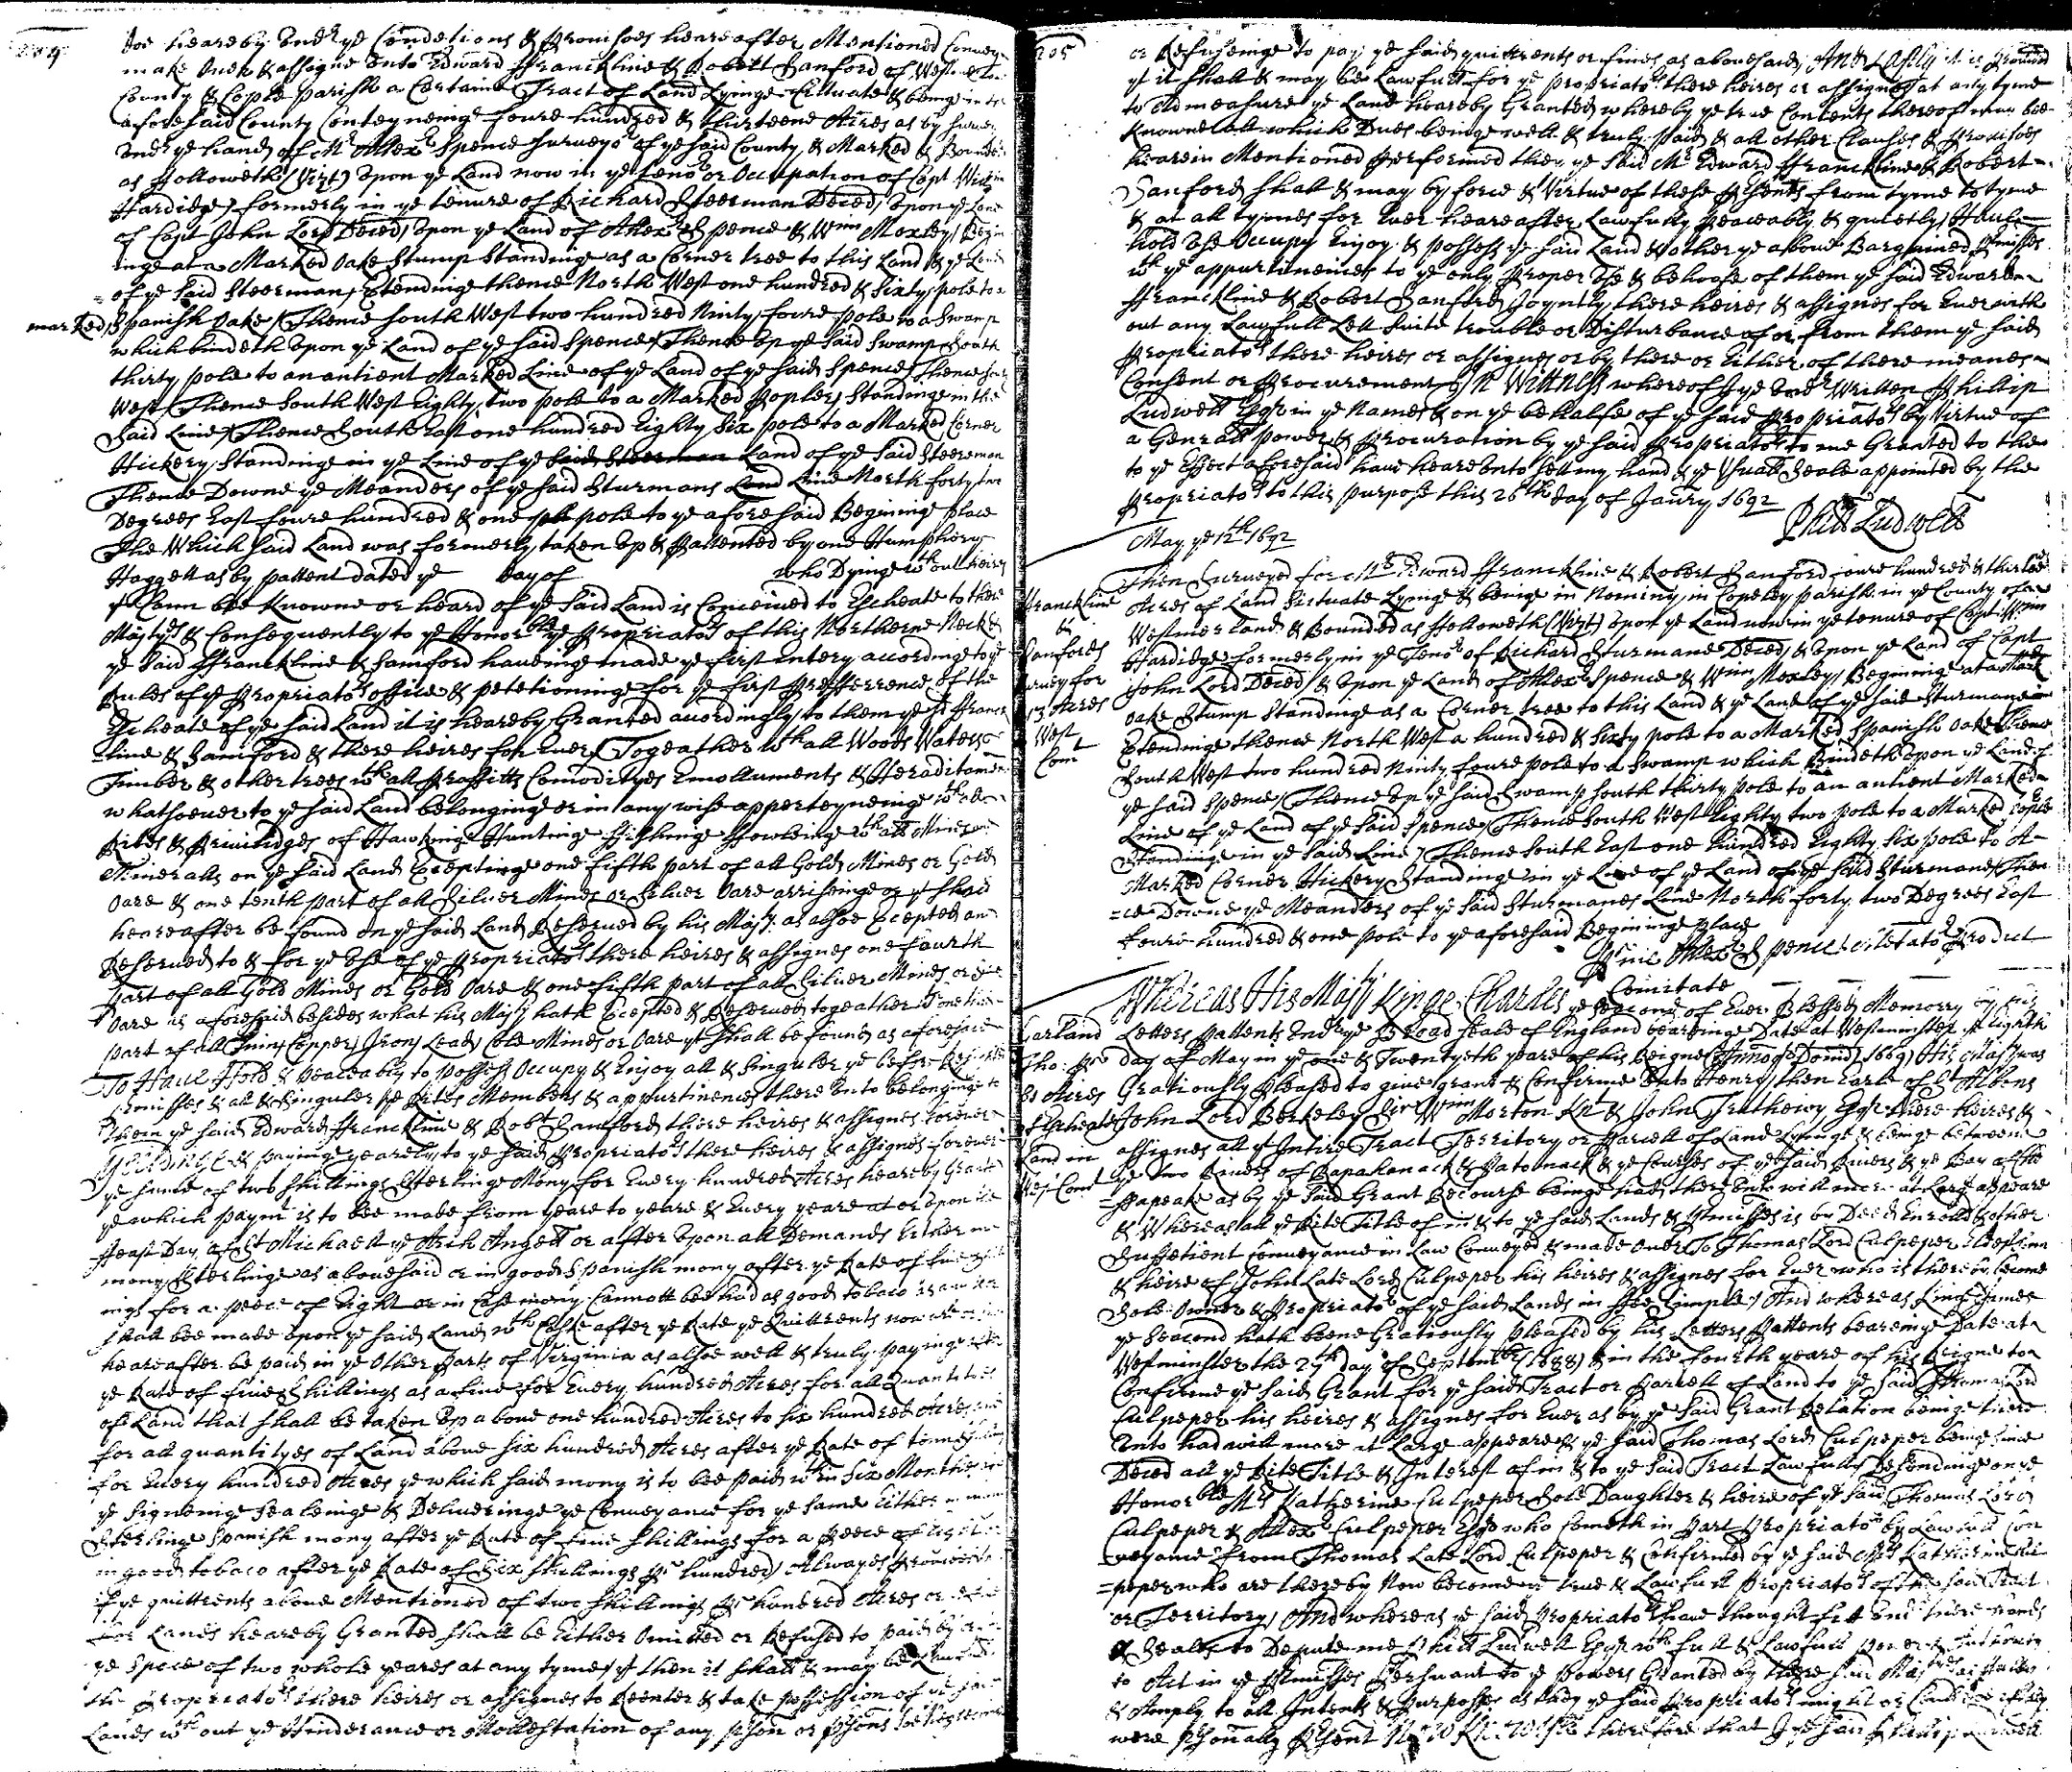 doe heareby Endr ye Condetions & Provisoes heareafter Mentioned Convey
make Over & assigne unto Edward Franckline & Robert Sanford of
County & Cople Parish a Certaine Tract of Land Lyinge Cittuate & beinge in
aforesaid County Conteyneinge foure hundred & thirteene Acres as by
Endr ye hand of Mr Allexr Spence Surveyor of ye said County & Marked & Bounded
as Followeth (Vizt) Upon ye Land now in ye Tenor or Occupation of Capt Wm
Hardidge formerly in ye tenure of Richard Steerman Deced, Upon ye Land
of Capt John Lord Deced, Upon ye Land of Allexr Spence & Wm Moxley, Begin
inge at a Marked Oake Stump Standinge as a Corner tree to this Land & ye Land
of ye said Steerman, Extendinge thence North West one hundred & Sixty pole to a
marked Spanish Oake, Thence South West two hundred Ninty foure pole to a Swamp
which bindeth Upon ye Land of ye said Spence, Thence Up ye said Swamp South
thirty pole to an antient Marked Line of ye Land of ye said Spence, Thence South
West, Thence South West Eighty two pole to a Marked Popler, Standinge in the
Said Line, Thence South East one hundred Eighty Six pole to a Marked Corner
Hickery Standinge in ye Line of ye Said Steerman Land of ye Said Steerman
Thence Downe ye Meanders of ye said Sturmans Land Line North forty two
Degrees East foure hundred & one pole to ye aforesaid Begining place
The Which said Land was formerly taken Up & Pattented by one Humphery
Haggett as by pattent dated ye day of who Dyinge wth out heires
yt Cann bee Knowne or heard of ye said Land is Conceived to Escheate to there
Majtyes & Consequently to ye Honorble ye Propriators of this Northerne Neck &
ye said Franckline & Samford haveinge made ye first entery accordinge to ye
Rules of ye Propriators office & petetioninge for ye first Prefferrence of the
Escheate of ye said Land it is heareby Granted accordingly to them ye sd Franck
line & Samford & there heires for Ever, Togeather wth all Woods Waters
Timber & other trees wth all Proffitts Comodityes Emolluments & Heraditaments
whatsoever to ye said Land belonginge or in any wise apperteyneinge wth all
Rites & Priviledges of Hawkinge Huntinge Fishinge Fowleinge wth all Mines
Mineralls on ye said Land Excepting one fifth part of all Gold Mines or Gold
Oare & one tenth part of all Silver Mines or Silver Oare arriseinge or yt shall
heareafter be found on ye said Land Reserved by his Majty as alsoe Excepted and
Reserved to & for ye Use of ye Propriators there heires & assignes one fourth
part of all Gold Mines or Gold Oare & one fifth part of all Silver Mines or Silver
Oare as aforesaid besides what his Majty hath Excepted & Reserved togeather wth one third
part of all Tinny Copper, Irony Lead, Cole Mines or Oare yt shall be found as aforesaid
To Have Hold & peaceably to possess Occupy & Enjoy all & singuler ye before Resited
Premisses & all & singuler ye Rites Members & appurtinences there Unto belonginge to
Them ye said Edward Franckline & Robt Samford there heires & assignes forever
Yeildinge & payinge yearely to ye said Propriators there heires & assignes forever
ye sume of two shillings Sterlinge Mony for Every hundred Acres heareby Granted
ye which paymt is to bee made from yeare to yeare & Every yeare at or upon the
Feast Day of St Michaell ye Arch Angell or after Upon all Demands Either in
mony Sterlinge as abovesaid or in good Spanish mony after ye Rate of five shill
ings for a peece of Eight or in Case mony Cannott bee had as good tobaco as can or
shall bee made Upon ye said Land wth Caske after ye Rate ye Quittrents now are or
heareafter be paid in ye Other Parts of Virginia as alsoe well & truly payinge after
ye Rate of five shillings as a fine for Every hundred Acres for all Quantetis
of Land that shall be taken Up above one hundred Acres to six hundred Acres and
for all quantityes of Land above six hundred Acres after ye Rate of tenn shill
for Every hundred Acres ye which said mony is to bee paid wthin Six Monthes
ye signeinge sealeinge & Deliveringe ye Conveyance for ye same Either in mony
Sterlinge Spanish mony after ye Rate of five shillings for a Peece of Eight or
in good tobaco after ye Rate of Six shillings Pr hundred, Alwayes Provided
if ye quittrents above Mentioned of two shillings Pr hundred Acres or
for Lands heareby Granted shall be Either Omitted or Refused to paid by
ye space of two whole yeares at any tyme yt then it shall & may be Lawfull
the Propriators there heires or assignes to Reenter & take possession of ye said
Lands wth out ye Hinderance or Mollestation of any pson or psons
205
or Refuseinge to pay ye said quittrents or fines as abovesaid, And Lastly it is Provided
yt it shall & may be Lawfull for ye propriators there heires or assignes at any tyme
to Admeasure ye Land heareby Granted whereby ye true Contents thereof may bee
Knowne all which Dues beinge well & truly paid & all other Clauses & Provisoes
hearein Mentioned Performed then ye said Mr Edward Franckline & Robert
Sanford shall & may by force & Virtue of these Psents from tyme to tyme
& at all tymes for Ever heareafter Lawfully Peaceably & quietly, Have
hold Use Occupy Enjoy & possess ye said Land & other ye above Bargained Pmisses
wth ye appurtinences to ye only Proper Use & behoofe of them ye said Edward
Franckline & Robert Sanford Joyntly there heires & assignes for Ever with
out any Lawfull Lett Suite trouble or Disturbance of or from them ye said
Propriators there heires or assignes or by there or Either of there meanes
Consent or Procurement, In Wittness whereof I ye Undr Written Phillip
Ludwell Esqr in ye Name & on ye behalfe of ye said Propriators by Virtue of
a Genrall power & Procuration by ye said Propriators to me Granted to the
to ye Effect aforesaid have heareunto sett my hand & ye Usuall Seale appointed by the
Propriators to this purpose this 26th day of Janry 1692
Phill Ludwell
May ye 12th 1692
Franckline
&
Sanfords
survey for
Acres
West
Com
Then Surveyed for Mr Edward Franckline & Robert Sanford foure hundred & thirteene
Acres of Land Sittuate Lyinge & beinge in Nominy in Copeley parish in ye County of
Westmerland & Bounded as Followeth (Vizt) Upon ye Land now in ye tenure of Capt Wm
Hardidge formerly in ye Tenor of Richard Sturmane Deced, & Upon ye Land of Capt
John Lord Deced, & Upon ye Land of Allexr Spence & Wm Moxley, Begining at a Markt
Oake Stump Standinge as a Corner tree to this Land & ye Land of ye said Sturmane
Extendinge thence North West a hundred & Sixty pole to a Marked Spanish Oake Thence
South West two hundred Ninty foure pole to a Swamp which Bindeth Upon ye Land of
ye said Spence, Thence Up ye said Swamp South thirty pole to an antient Marked
Line of ye Land of ye said Spence, Thence South West Eighty two pole to a Marked Popler
Standinge in ye said Line, Thence South East one hundred Eighty Six pole to A
Marked Corner Hickery Standinge in ye Line of ye Land of ye said Sturmane, Then
=ce Downe ye Meanders of ye said Sturmanes Line North forty two Degrees East
foure hundred & one pole to ye aforesaid Begining Place
Allexr Spence
Comitate
Garland
Tho:
Acres
Escheate
Land in
West Com
Whereas His Majty Kinge Charles ye Second of Ever Blessed Memorry by his
Letters Pattents Undr ye Broad seale of England beareinge Date at Westminster ye Eighth
day of May in ye one & Twentyeth yeare of his Reigne Annoqe Domi 1669, His Majty was
Gratiously Pleased to give grant & Confirme Unto Henry then Earle of St Albens
John Lord Berkeley Sir Wm Morton Knt & John Trethewy Esqr there heires &
assignes all yt Intire Tract Territory or Parcell of Land Lyinge & beinge betweene
ye two Rivers of Rapahanack & Patomack & ye Courses of ye said Rivers & ye Bay of Che
=sapeake as by ye said Grant Recourse beinge had thereunto will more at large appeare
& Whereas all ye Rite Title of in & to ye said Lands & Pmisses is by Deed Enrolld & other
Suffetient Conveyance in Law Conveyed & made over To Thomas Lord Culpeper Eldest sonn
& heire of John Late Lord Culpeper his heires & assignes for Ever who is thereby become
Sole Owner & Propriator of ye said Lands in Fee Simple, And whereas King James
ye Second hath beene Gratiously pleased by his Letters Pattents beareinge Date at
Westminster the 27th day of September (1688) & in the fourth yeare of his Reigne to
Confirme ye said Grant for ye said Tract or Parcell of Land to ye said Thomas Lord
Culpeper his heires & assignes for Ever as by ye said Grant Relation beinge there
Unto had will more at Large appeare & ye said Thomas Lord Culpeper beinge since
Deced all ye Rite Title & Interest of in & to ye said Tract Lawfully Desendinge on ye
Honorble Mrs Katherine Culpeper Sole Daughter & heire of ye said Thomas Lord
Culpeper & Allexr Culpeper Esqr who cometh in Part Propriator by Lawfull Con
=veyance from Thomas Late Lord Culpeper & Confirmed by ye said Mrs Katherine Cul
=peper who are thereby Now become ye true & Lawfull Propriators of the said Tract
or Territory, And whereas ye said Propriators have thought fitt Undr there hands
& Seales to Depute me Phill Ludwell Esqr wth full & Lawfull power & Authority
to Act in ye Pmisses Persuant to ye powers Granted by there said Majtyes as
& Amply to all Intents & Purposses as they ye said Propriators might or Could doe if they
were Psonally Psent Now Know Yee therefore that I ye said Phillip Ludwell